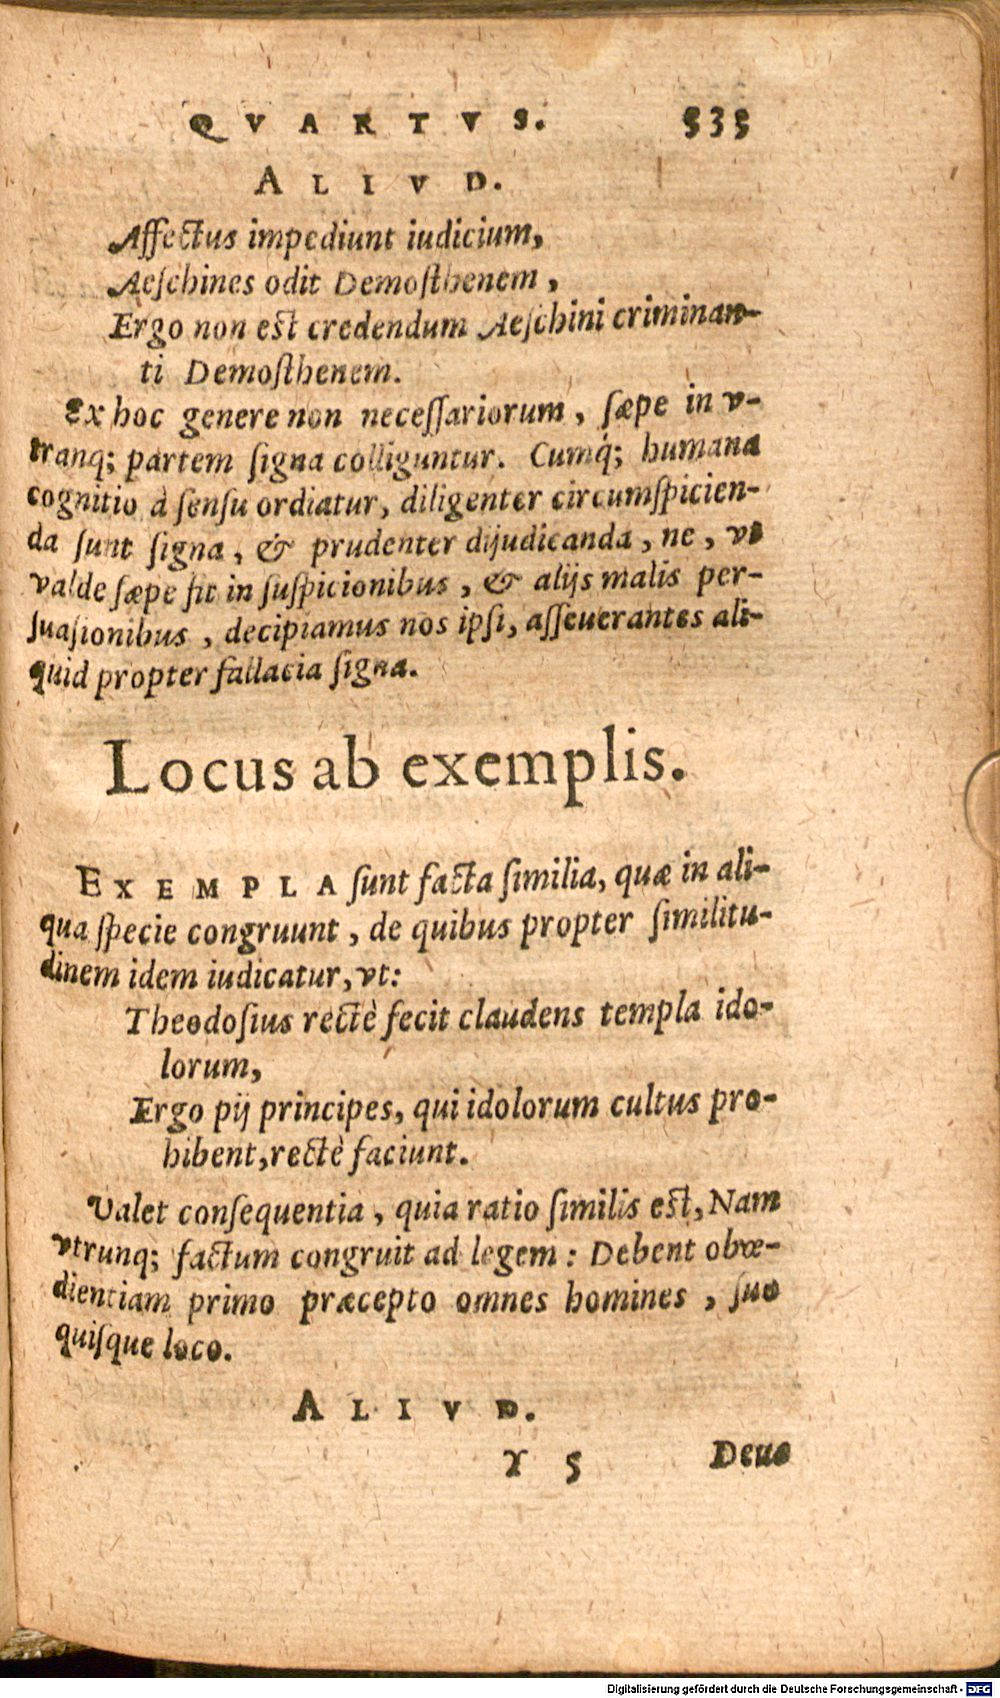 QVARTVS. 535
ALIVD.
Affectus impediunt iudicium,
Aeſchines odit Demoſthenem,
Ergo non est credendum Aeſchini criminan-
ti Demoſthenem.
Ex hoc genere non neceſſariorum, ſæpe in v-
tranq; partem ſigna colliguntur. Cumq́; humana
cognitio à ſenſu ordiatur, diligenter circumſpicien-
da ſunt ſigna, & prudenter dijudicanda, ne, vt
valde ſæpe fit in ſuſpicionibus, & alijs malis per-
ſuaſionibus, decipiamus nos ipſi, aſſeuerantes ali-
quid propter fallacia ſigna.
Locus ab exemplis.
EXEMPLA ſunt facta ſimilia, quæ in ali-
qua ſpecie congruunt, de quibus propter ſimilitu-
dinem idem iudicatur, vt:
Theodoſius rectè fecit claudens templa ido-
lorum,
Ergo pij principes, qui idolorum cultus pro-
hibent, rectè faciunt.
Valet conſequentia, quia ratio ſimilis est, Nam
vtrunq; factum congruit ad legem: Debent obœ-
dientiam primo præcepto omnes homines, ſuo
quiſque loco.
ALIVD.
Y 5 Deus
Digitalisierung gefördert durch die Deutsche Forschungsgemeinschaft - DFG